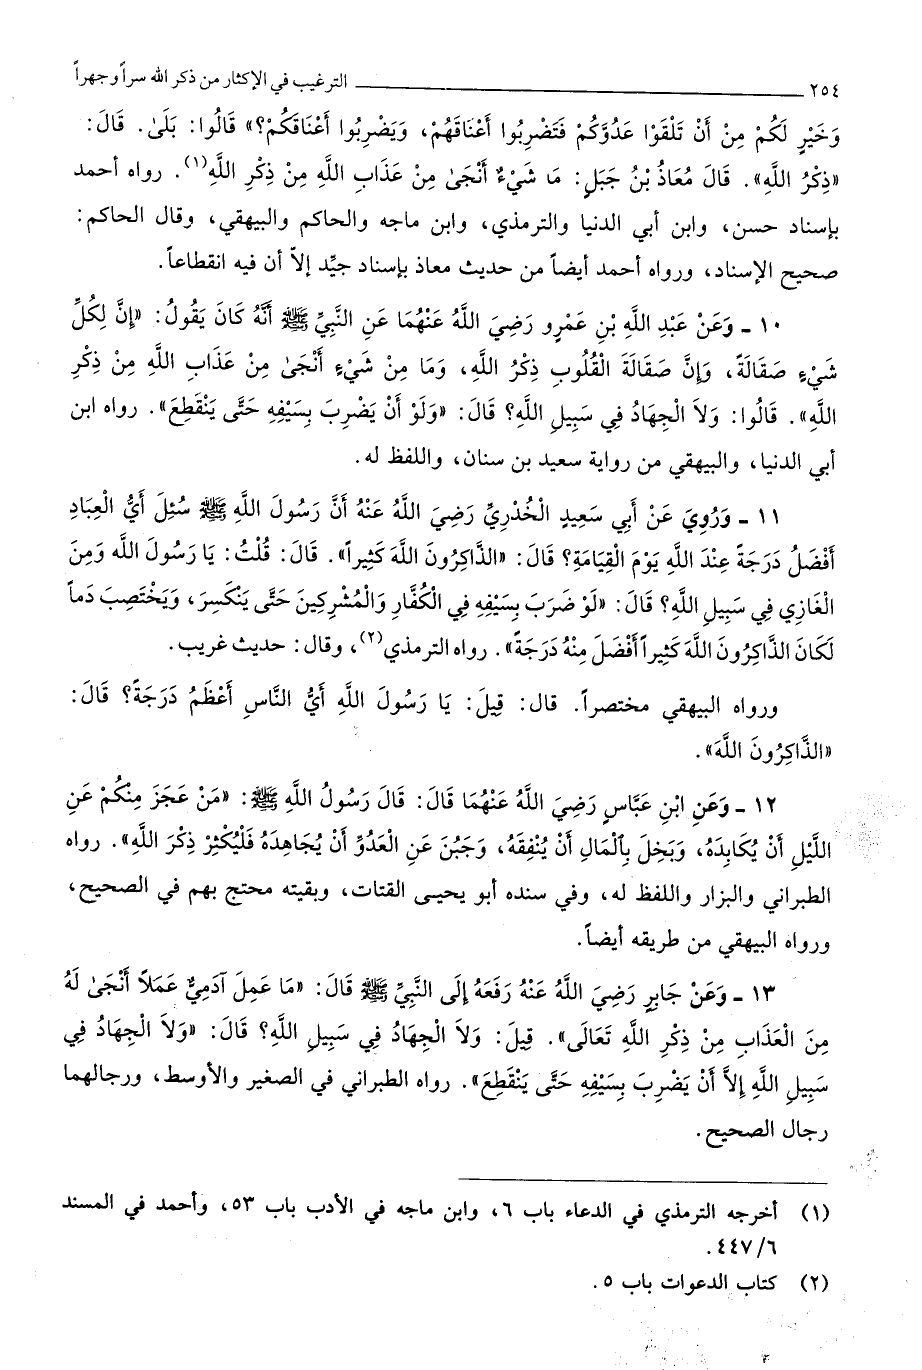 ٢٥٤ الترغيب في الإكثار من ذكر الله سراً وجهراً
وَخَيْرٍ لَكُمْ مِنْ أَنْ تَلْقَوْا عَدُوَّكُمْ فَتَضْرِبُوا أَعْنَاقَهُمْ، وَيَضْرِبُوا أَعْنَاقَكُمْ؟» قَالُوا: بَلَىٰ. قَالَ:
«ذِكْرُ اللَّهِ». قَالَ مُعَاذُ بْنُ جَبَلٍ: مَا شَيْءٌ أَنْجَىٰ مِنْ عَذَابِ اللَّهِ مِنْ ذِكْرِ اللَّهِ(١). رواه أحمد
بإسناد حسن، وابن أبي الدنيا والترمذي، وابن ماجه والحاكم والبيهقي، وقال الحاكم:
صحيح الإسناد، ورواه أحمد أيضاً من حديث معاذ بإسناد جيِّد إلاَّ أن فيه انقطاعاً.
١٠ - وَعَنْ عَبْدِ اللَّهِ بْنِ عَمْرٍو رَضِيَ اللَّهُ عَنْهُمَا عَنِ النَّبِيِّ ﷺ أَنَّهُ كَانَ يَقُولُ: «إِنَّ لِكُلِّ
شَيْءٍ صَقَالَةً، وَإِنَّ صَقَالَةَ الْقُلُوبِ ذِكْرُ اللَّهِ، وَمَا مِنْ شَيْءٍ أَنْجَىٰ مِنْ عَذَابِ اللَّهِ مِنْ ذِكْرِ
اللَّهِ». قَالُوا: وَلاَ الْجِهَادُ فِي سَبِيلِ اللَّهِ؟ قَالَ: «وَلَوْ أَنْ يَضْرِبَ بِسَيْفِهِ حَتَّى يَنْقَطِعَ». رواه ابن
أبي الدنيا، والبيهقي من رواية سعيد بن سنان، واللفظ له.
١١ - وَرُوِيَ عَنْ أَبِي سَعِيدٍ الْخُدْرِيِّ رَضِيَ اللَّهُ عَنْهُ أَنَّ رَسُولَ اللَّهِ ﷺ سُئِلَ أَيُّ الْعِبَادِ
أَفْضَلُ دَرَجَةً عِنْدَ اللَّهِ يَوْمَ الْقِيَامَةِ؟ قَالَ: «الذَّاكِرُونَ اللَّهَ كَثِيراً». قَالَ: قُلْتُ: يَا رَسُولَ اللَّه وَمِنَ
الْغَازِي فِي سَبِيلِ اللَّهِ؟ قَالَ: «لَوْ ضَرَبَ بِسَيْفِهِ فِي الْكُفَّارِ وَالْمُشْرِكِينَ حَتَّى يَنْكَسِرَ، وَيَخْتَضِبَ دَماً
لَكَانَ الذَّاكِرُونَ اللَّهَ كَثِيراً أَفْضَلَ مِنْهُ دَرَجَةً». رواه الترمذي(٢)، وقال: حديث غريب.
ورواه البيهقي مختصراً. قال: قِيلَ: يَا رَسُولَ اللَّهِ أَيُّ النَّاسِ أَعْظَمُ دَرَجَةً؟ قَالَ:
«الذَّاكِرُونَ اللَّهَ».
١٢ - وَعَنِ ابْنِ عَبَّاسٍ رَضِيَ اللَّهُ عَنْهُمَا قَالَ: قَالَ رَسُولُ اللَّهِ ﷺ: «مَنْ عَجَزَ مِنْكُمْ عَنِ
اللَّيْلِ أَنْ يُكَابِدَهُ، وَبَخِلَ بِالْمَالِ أَنْ يُنْفِقَهُ، وَجَبُنَ عَنِ الْعَدُوِّ أَنْ يُجَاهِدَهُ فَلْيُكْثِرْ ذِكْرَ اللَّهِ». رواه
الطبراني والبزار واللفظ له، وفي سنده أبو يحيى القتات، وبقيته محتج بهم في الصحيح،
ورواه البيهقي من طريقه أيضاً.
١٣ - وَعَنْ جَابِرٍ رَضِيَ اللَّهُ عَنْهُ رَفَعَهُ إِلَى النَّبِيِّ ﷺ قَالَ: «مَا عَمِلَ آدَمِيٌّ عَمَلاً أَنْجَىٰ لَهُ
مِنَ الْعَذَابِ مِنْ ذِكْرِ اللَّهِ تَعَالَى». قِيلَ: وَلاَ الْجِهَادُ فِي سَبِيلِ اللَّهِ؟ قَالَ: «وَلاَ الْجِهَادُ فِي
سَبِيلِ اللَّهِ إِلاَّ أَنْ يَضْرِبَ بِسَيْفِهِ حَتَّى يَنْقَطِعَ». رواه الطبراني في الصغير والأوسط، ورجالهما
رجال الصحيح.
(١) أخرجه الترمذي في الدعاء باب ٦، وابن ماجه في الأدب باب ٥٣، وأحمد في المسند
٤٤٧/٦.
(٢) كتاب الدعوات باب ٥.